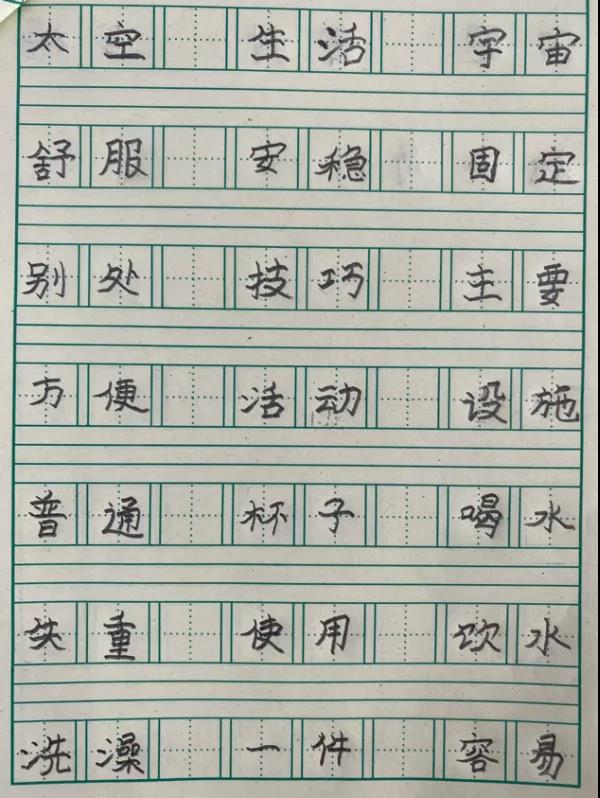 太空 生活 宇宙
舒服 安稳 固定
别处 技巧 主要
方便 活动 设施
普通 杯子 喝水
失重 使用 饮水
洗澡 一件 容易